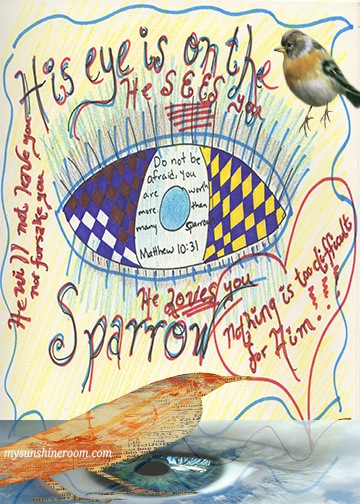 His eye is on the
He SEES you
He will not leave you
nor forsake you
Do not be
afraid, you
are worth
more than
many sparrows
Matthew 10:31
He loves you
Sparrow
nothing is too difficult
for Him!!!
mysunshineroom.com